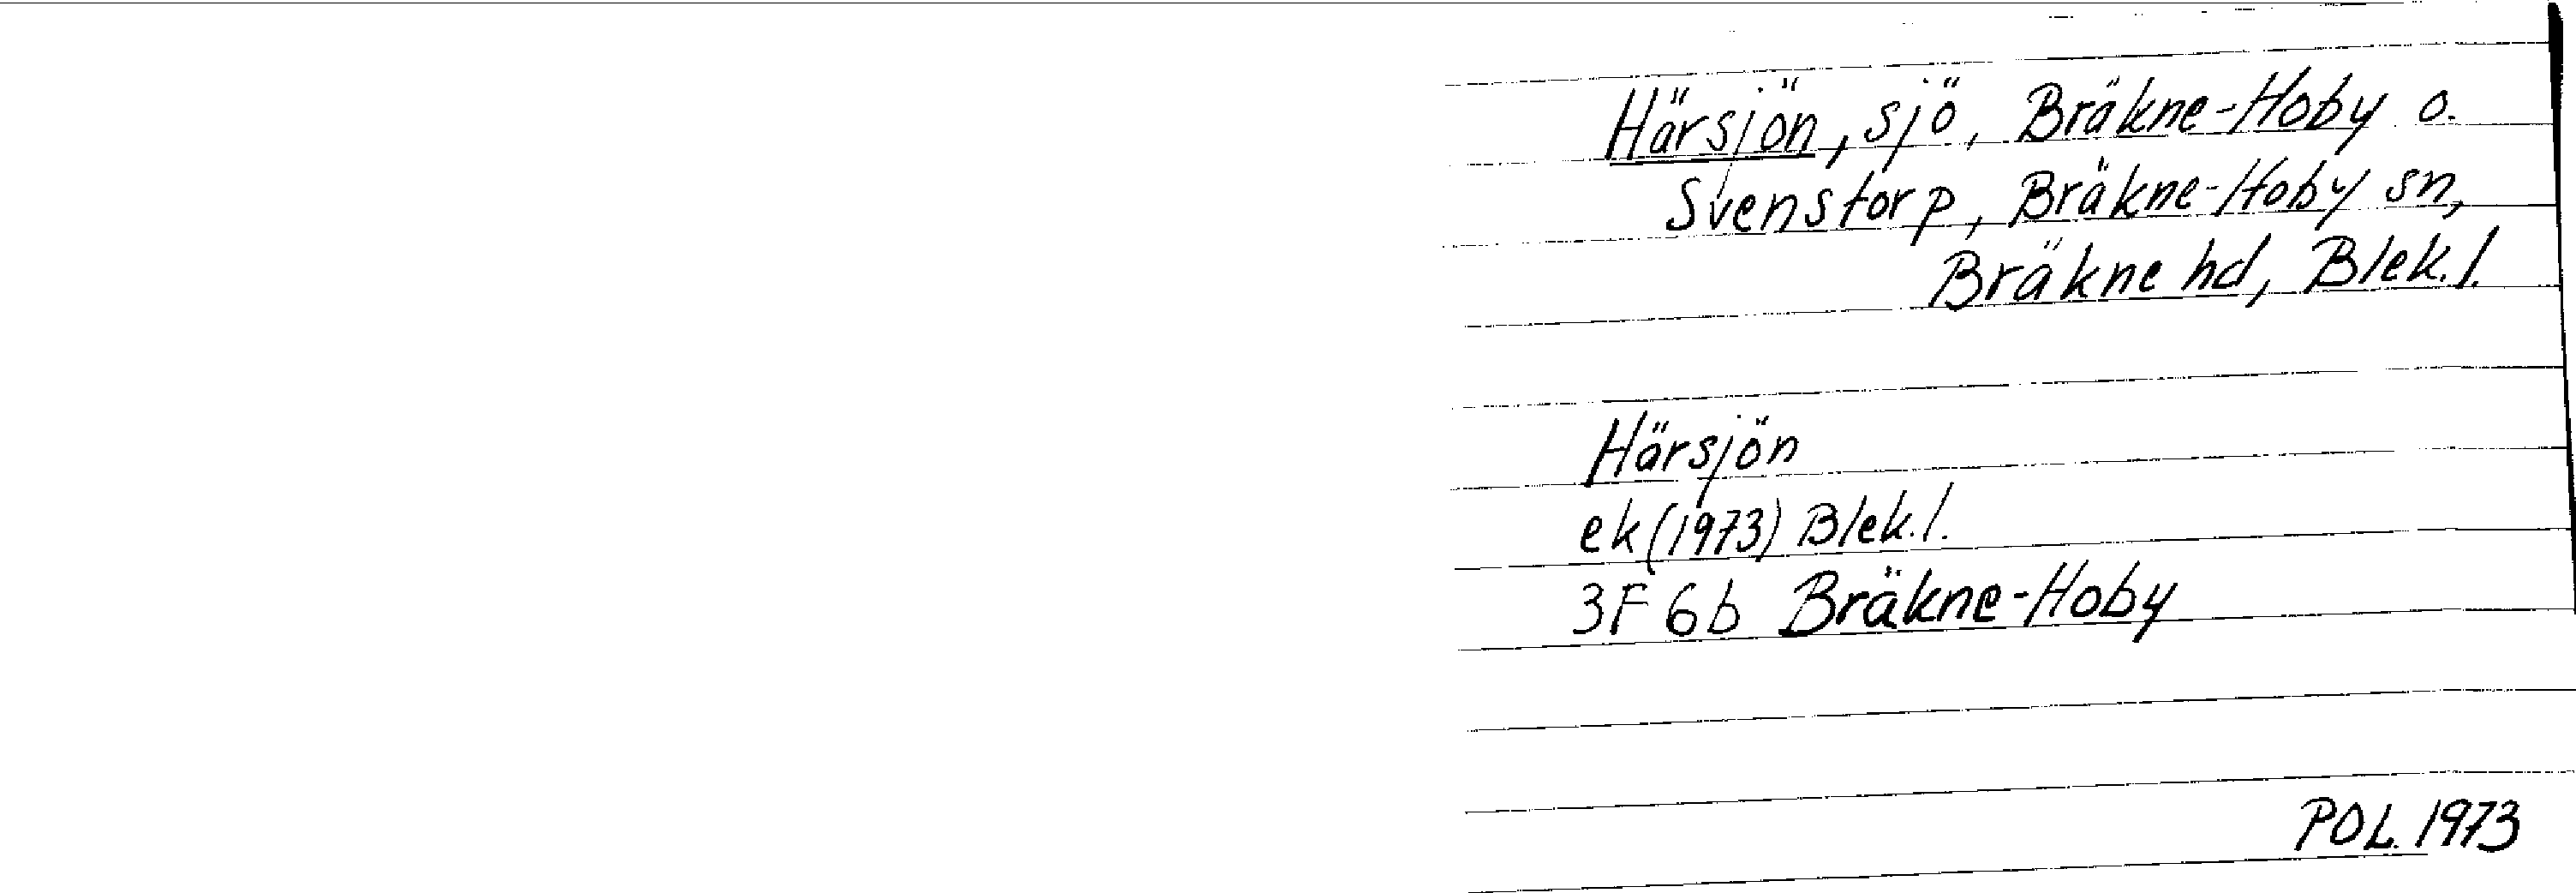 Härsjön, sjö, Bräkne-Hoby o.
Svenstorp, Bräkne-Hoby sn,
Bräkne hd, Blek. l.
Härsjön
ek (1973) Blek. l.
3F 6b Bräkne-Hoby
POL. 1973